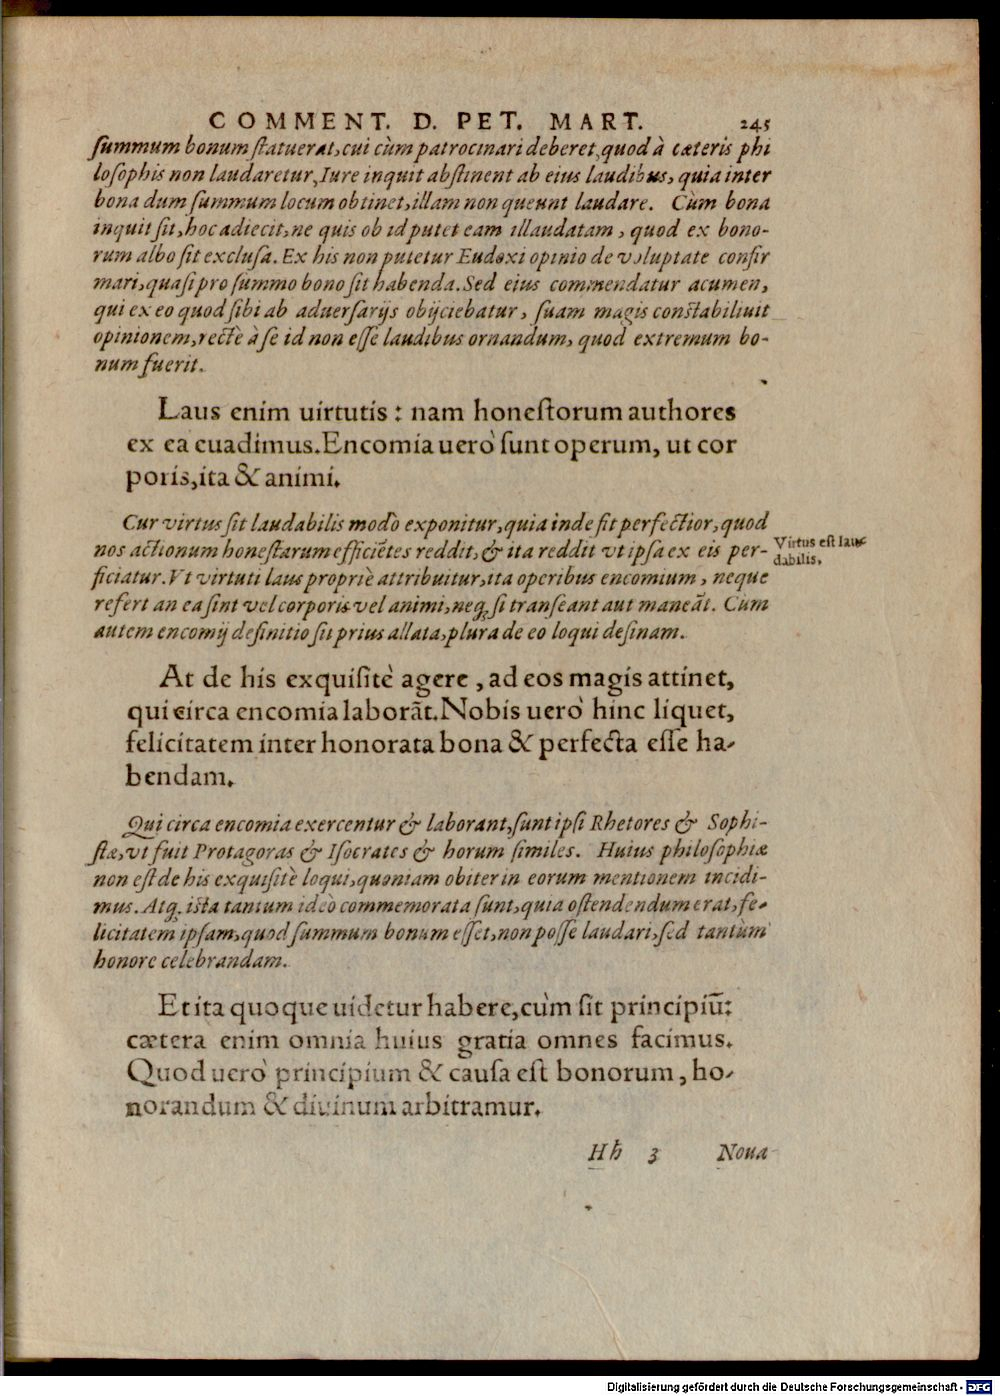 COMMENT. D. PET. MART. 245
ſummum bonum ſtatuerat, cui cùm patrocinari deberet, quod à cæteris phi
loſophis non laudaretur, Iure inquit abſtinent ab eius laudibus, quia inter
bona dum ſummum locum obtinet, illam non queunt laudare. Cùm bona
inquit ſit, hoc adiecit, ne quis ob id putet eam illaudatam, quod ex bono-
rum albo ſit excluſa. Ex his non putetur Eudoxi opinio de voluptate confir
mari, quaſi pro ſummo bono ſit habenda. Sed eius commendatur acumen,
qui ex eo quod ſibi ab aduerſarijs obijciebatur, ſuam magis conſtabiliuit
opinionem, rectè à ſe id non eſſe laudibus ornandum, quod extremum bo-
num fuerit.
Laus enim uirtutis: nam honeſtorum authores
ex ea euadimus. Encomia uerò ſunt operum, ut cor
poris, ita & animi.
Cur virtus ſit laudabilis modò exponitur, quia inde fit perfectior, quod
nos actionum honeſtarum efficiẽtes reddit, & ita reddit vt ipſa ex eis per-
ficiatur. Vt virtuti laus propriè attribuitur, ita operibus encomium, neque
refert an ea ſint vel corporis vel animi, neq; ſi tranſeant aut maneãt. Cùm
autem encomij definitio ſit prius allata, plura de eo loqui deſinam.
Virtus eſt lau-
dabilis.
At de his exquiſitè agere, ad eos magis attinet,
qui circa encomia laborãt. Nobis uerò hinc liquet,
felicitatem inter honorata bona & perfecta eſſe ha-
bendam.
Qui circa encomia exercentur & laborant, ſunt ipſi Rhetores & Sophi-
ſtæ, vt fuit Protagoras & Iſocrates & horum ſimiles. Huius philoſophiæ
non eſt de his exquiſitè loqui, quoniam obiter in eorum mentionem incidi-
mus. Atq; iſta tantum ideò commemorata ſunt, quia oſtendendum erat, fe-
licitatem ipſam, quod ſummum bonum eſſet, non poſſe laudari, ſed tantùm
honore celebrandam.
Et ita quoque uidetur habere, cùm ſit principiũ:
cætera enim omnia huius gratia omnes facimus.
Quod uerò principium & cauſa eſt bonorum, ho-
norandum & diuinum arbitramur.
Hh 3 Noua
Digitalisierung gefördert durch die Deutsche Forschungsgemeinschaft - DFG